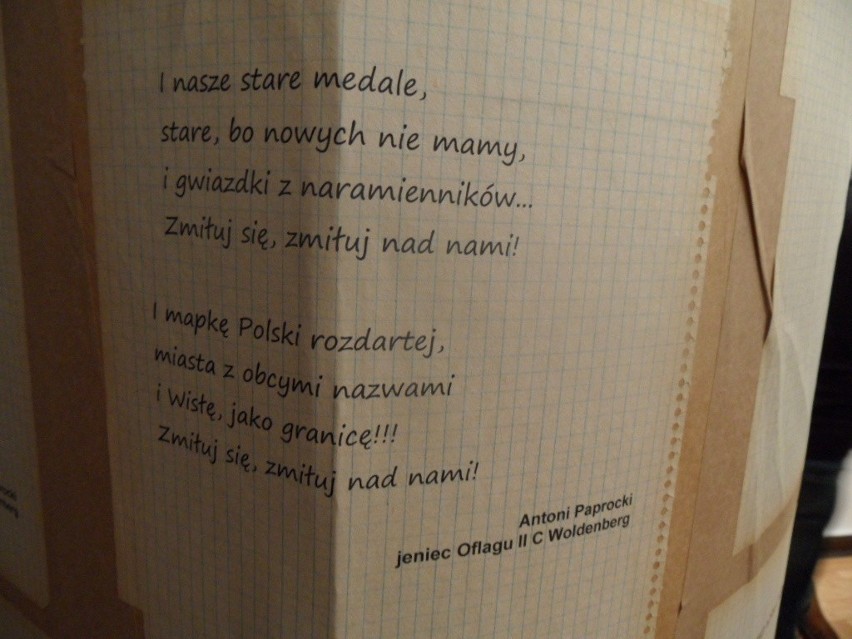 I nasze stare medale,
stare, bo nowych nie mamy,
i gwiazdki z naramienników...
Zmiłuj się, zmiłuj nad nami!
I mapkę Polski rozdartej,
miasta z obcymi nazwami
i Wisłę, jako granicę!!!
Zmiłuj się, zmiłuj nad nami!
Antoni Paprocki
jeniec Oflagu II C Woldenberg